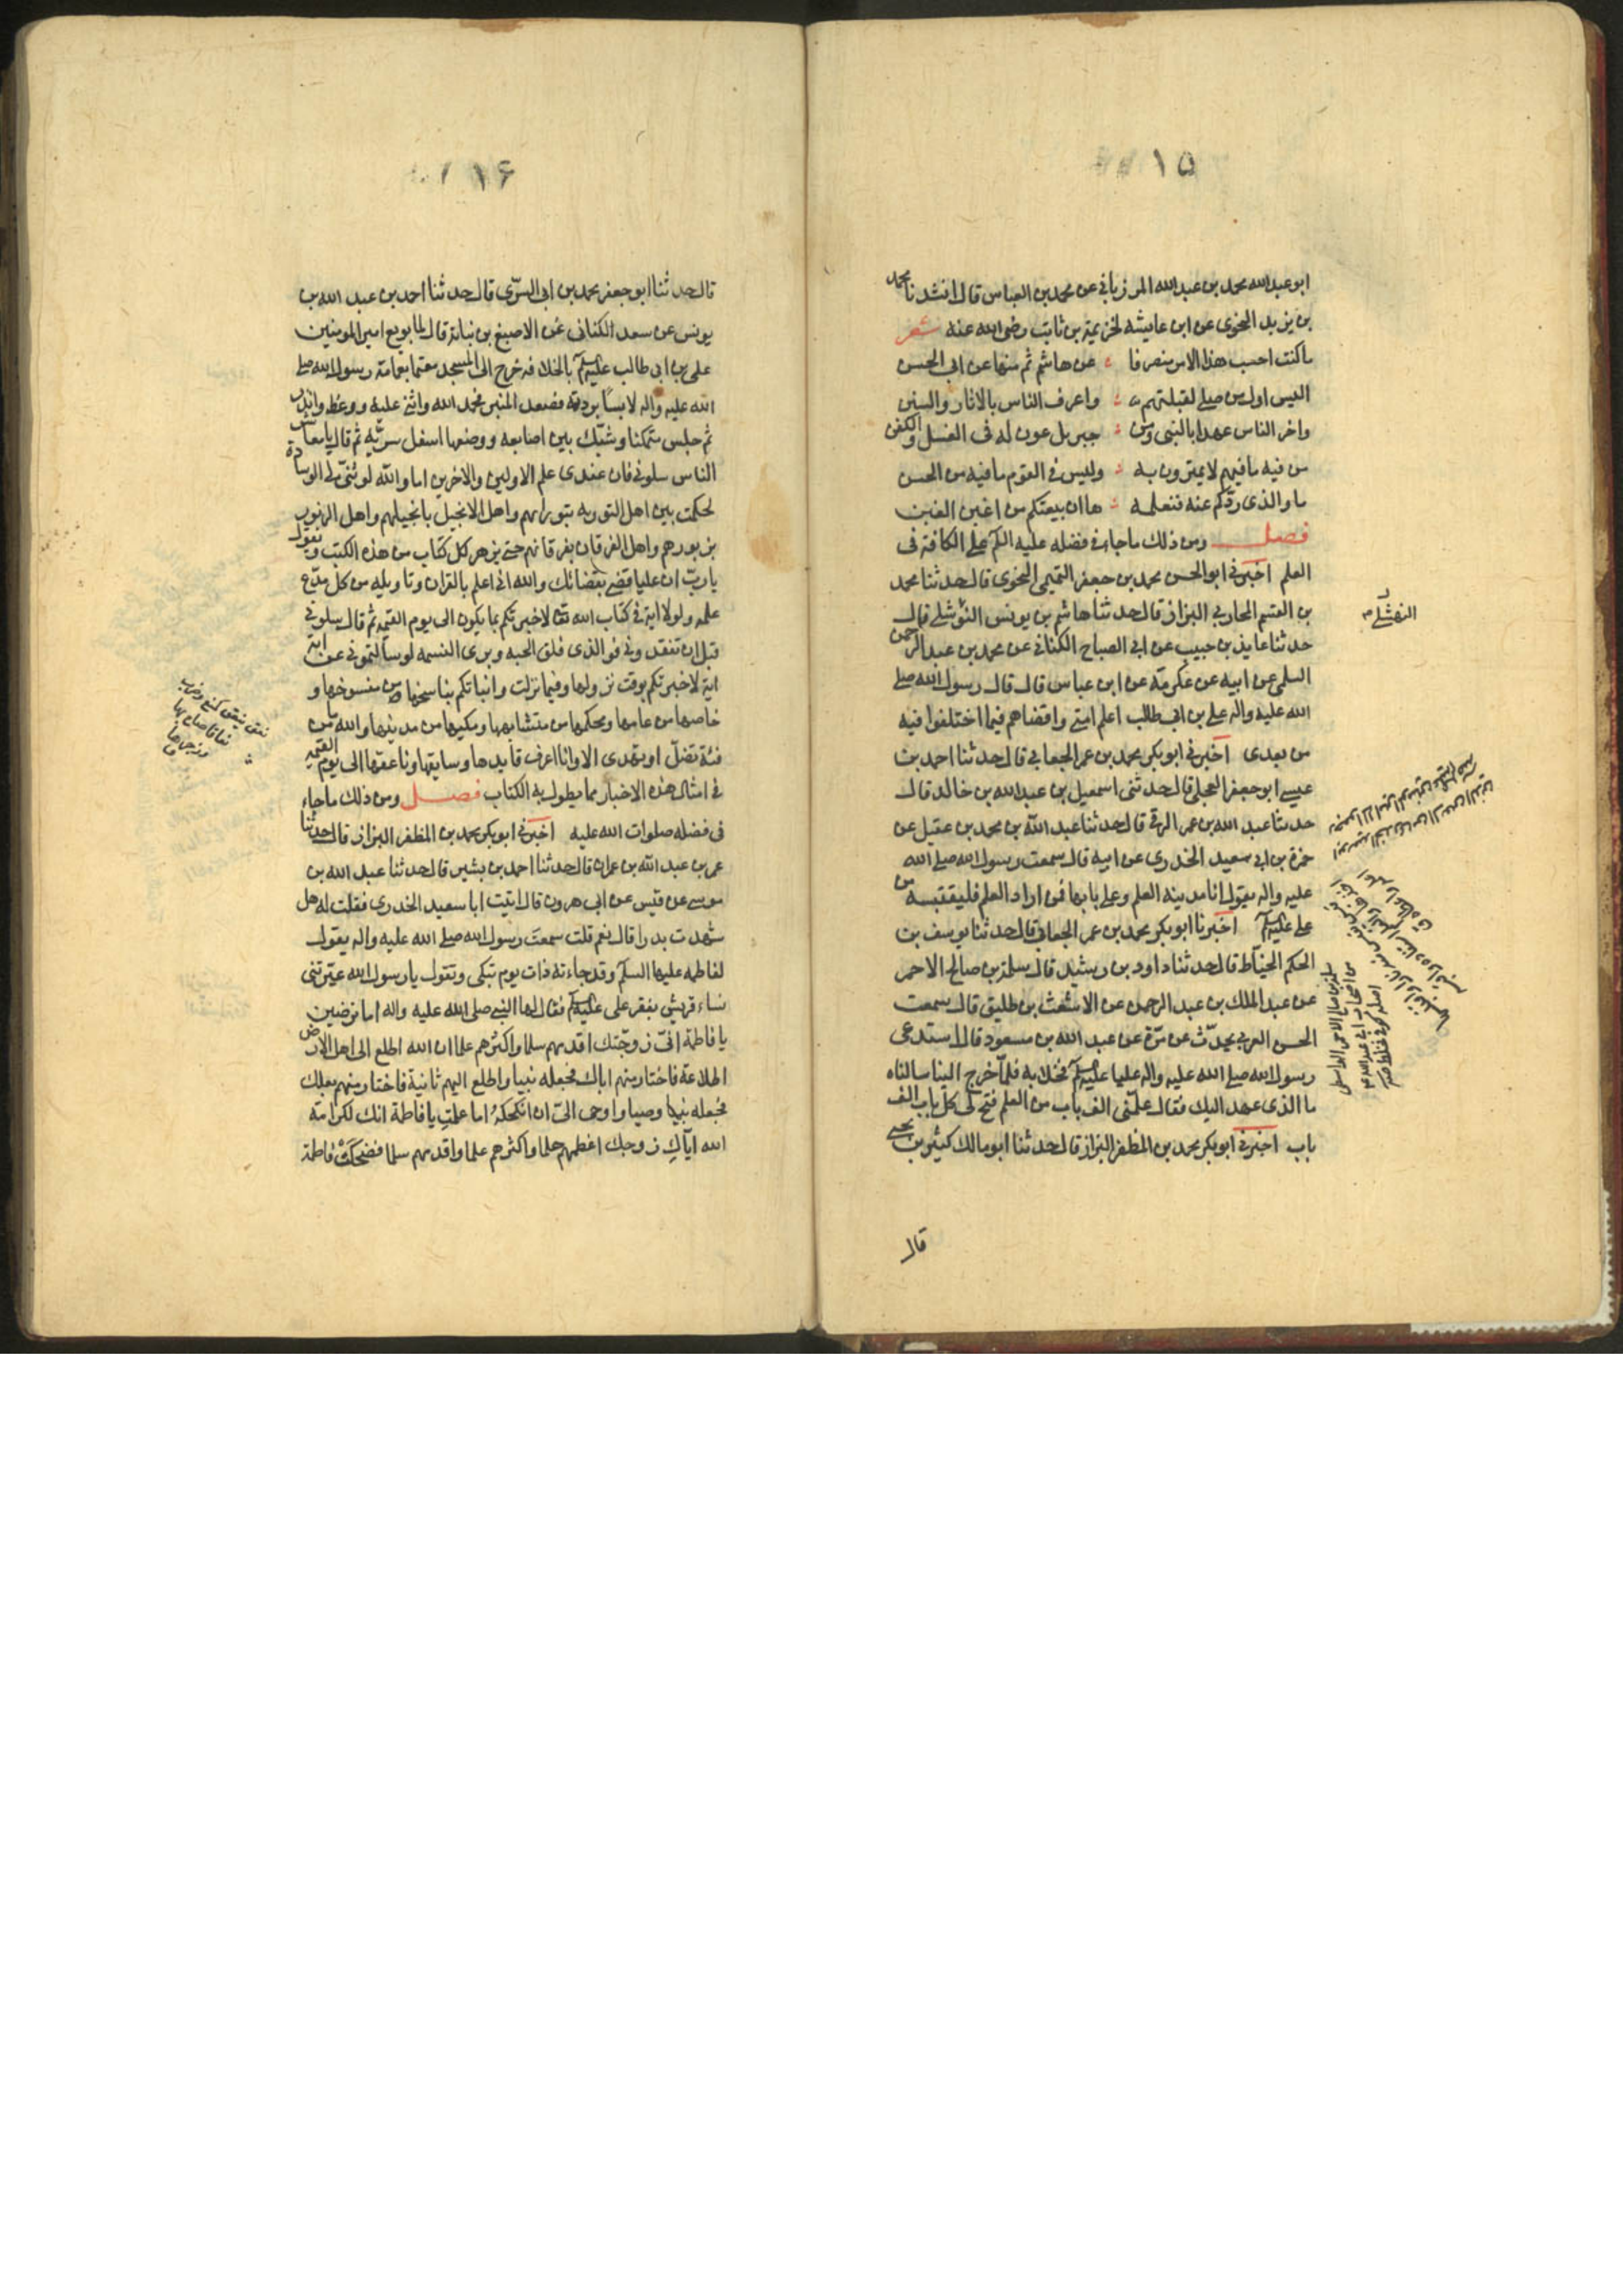 ١٥
ابو عبد الله محمد بن عبد الله المرزباني عن محمد بن العباس قال انشدنا محمد
بن يزيد النحوى عن ابن عايشه لخزيمة بن ثابت رضى الله عنه شعر
ما كنت احسب هذا الامر منصرفا عن هاشم ثم منها عن ابى الحسن
اليس اول من صلى لقبلتهم واعرف الناس بالاثار والسنن
واخر الناس عهدا بالنبى ومن جبريل عون له فى الغسل والكفن
من فيه ما فيهم لا يمترون به وليس فى القوم ما فيه من الحسن
ما والذى ردكم عنه فنعلمه ها ان بيعتكم من اغبن الغبن
فصل ومن ذلك ما جاء فى فضله عليه السلم على الكافة فى
العلم اخبرنى ابو الحسن محمد بن جعفر التميمى النحوى قال حدثنا محمد
بن القسم المحاربى البزاز قال حدثنا هاشم بن يونس النوشلى قال
حدثنا عايذ بن حبيب عن ابى الصباح الكنانى عن محمد بن عبد الرحمن
السلمى عن ابيه عن عكرمة عن ابن عباس قال قال رسول الله صلى
الله عليه واله على بن ابى طالب اعلم امتى واقضاهم فيما اختلفوا فيه
من بعدى اخبرنى ابو بكر محمد بن عمر الجعابى قال حدثنا احمد بن
عيسى ابو جعفر العجلى قال حدثنى اسمعيل بن عبد الله بن خالد قال
حدثنا عبد الله بن عمر الرقى قال حدثنا عبد الله بن محمد بن عقيل عن
حمزة بن ابى سعيد الخدرى عن ابيه قال سمعت رسول الله صلى الله
عليه واله يقول انا مدينه العلم وعلى بابها فمن اراد العلم فليقتبسه من
على عليه السلم اخبرنا ابو بكر محمد بن عمر الجعابى قال حدثنا يوسف بن
الحكم الحياط قال حدثنا داود بن رشيد قال سلمة بن صالح الاحمر
عن عبد الملك بن عبد الرحمن عن الاشعث بن طليق قال سمعت
الحسن العربى يحدث عن مرة عن عبد الله بن مسعود قال استدعى
رسول الله صلى الله عليه واله عليا عليه السلم فخلا به فلما خرج الينا سالناه
ما الذى عهد اليك فقال علمنى الف باب من العلم فتح لى كل باب الف
باب اخبرنى ابو بكر محمد بن المظفر البزاز قال حدثنا ابو مالك كثير بن يحيى
قال
النهشلى
سلمة بن صالح الاحمر الواسطى
من اصحاب ابى عبد الله
اصله كوفى
١٦
قال حدثنا ابو جعفر محمد بن ابى السرى قال حدثنا احمد بن عبد الله بن
يونس عن سعد الكنانى عن الاصبغ بن نباتة قال لما بويع امير المومنين
على بن ابى طالب عليه السلم بالخلافه خرج الى المسجد معتما بعمامة رسول الله صلى
الله عليه واله لابسا بردته فصعد المنبر فحمد الله واثنى عليه ووعظ وانذر
ثم جلس متمكنا وشبك بين اصابعه ووضعها اسفل سرته ثم قال يا معاشر
الناس سلونى فان عندى علم الاولين والاخرين اما والله لو ثنى لى الوسادة
لحكمت بين اهل التوريه بتوراتهم واهل الانجيل بانجيلهم واهل الزبور
بزبورهم واهل الفرقان بفرقانهم حتى يزهر كل كتاب من هذه الكتب ويقول
يا رب ان عليا قضى بقضائك والله انى اعلم بالقران وتاويله من كل مدع
علمه ولولا اية فى كتاب الله تعا لاخبرتكم بما يكون الى يوم القيمه ثم قال سلونى
قبل ان تفقدونى فو الذى فلق الحبه وبرى النسمه لو سالتمونى عن اية
اية لاخبرتكم بوقت نزولها وفيما نزلت وانباتكم بناسخها من منسوخها و
خاصها من عامها ومحكمها من متشابهها ومكيها من مدينها والله ما من
فئة تضل او تهدى الا وانا اعرف قايدها وسايقها وناعقها الى يوم القيمه
فى امثال هذه الاخبار مما يطول به الكتاب فصل ومن ذلك ما جاء
فى فضله صلوات الله عليه اخبرنى ابو بكر محمد بن المظفر البزاز قال حدثنا
عمر بن عبد الله بن عمران قال حدثنا احمد بن بشير قال حدثنا عبد الله بن
موسى عن قيس عن ابى هرون قال اتيت ابا سعيد الخدرى فقلت له هل
شهدت بدرا قال نعم قلت سمعت رسول الله صلى الله عليه واله يقول
لفاطمه عليها السلم وقد جاءته ذات يوم تبكى وتقول يا رسول الله عيرتنى
نساء قريش بفقر على عليه السلم فقال لها النبى صلى الله عليه واله اما ترضين
يا فاطمة انى زوجتك اقدمهم سلما واكثرهم علما ان الله اطلع الى اهل الارض
اطلاعة فاختار منهم اباك فجعله نبيا واطلع اليهم ثانية فاختار منهم بعلك
فجعله وصيا واوحى الى ان انكحكه اما علمت يا فاطمة انك لكرامة
الله اياك زوجك اعظمهم حلما واكثرهم علما واقدمهم سلما فضحكت فاطمة